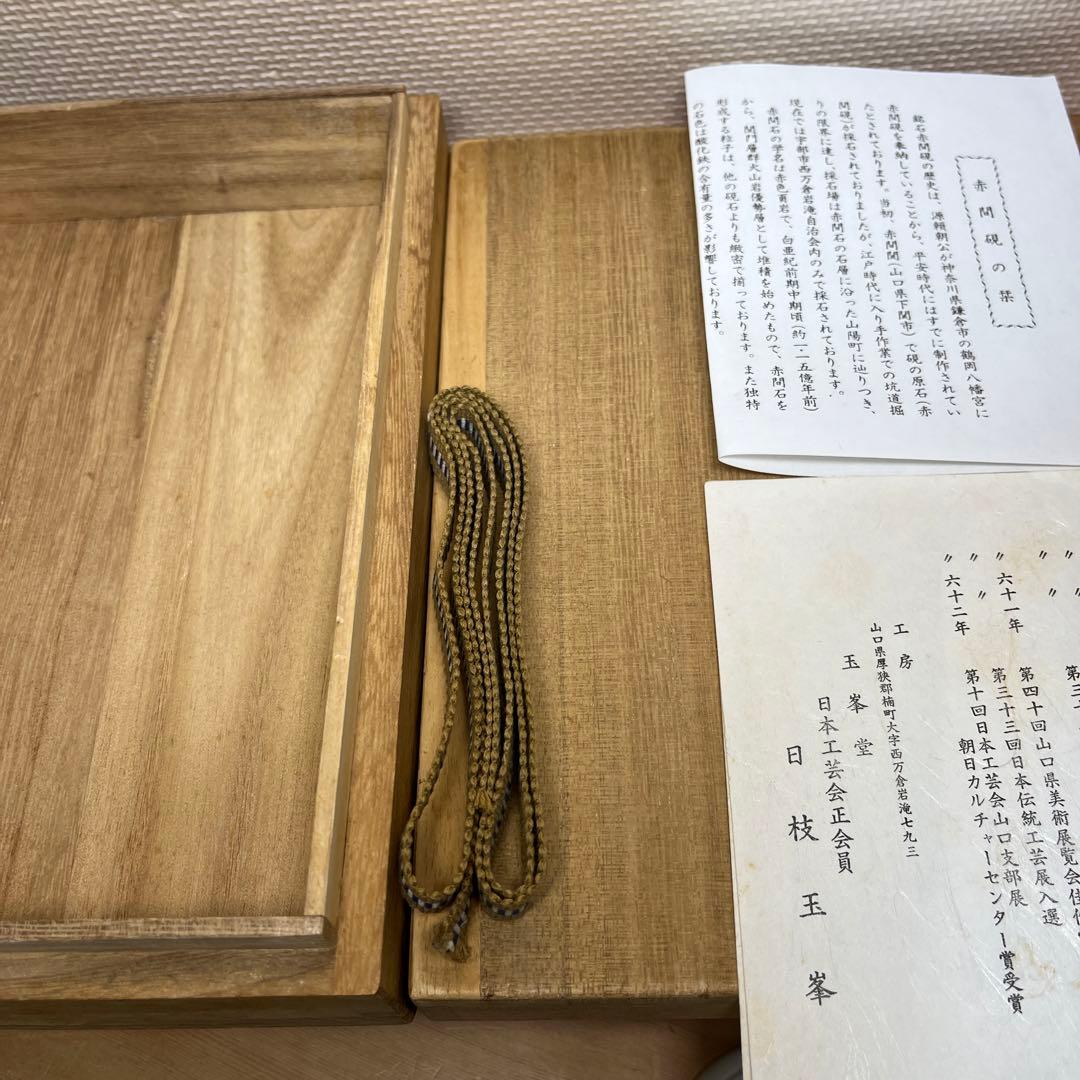 赤間硯の栞
銘石赤間硯の歴史は、源頼朝公が神奈川県鎌倉市の鶴岡八幡宮に
赤間硯を奉納していることから、平安時代にはすでに制作されてい
たとされております。当初、赤間関(山口県下関市)で硯の原石(赤
間硯)が採石されておりましたが、江戸時代に入り手作業での坑道掘
りの限界に達し、採石場は赤間石の石層に沿った山陽町に辿りつき、
現在では宇部市西万倉岩滝自治会内のみで採石されております。
赤間石の学名は赤色頁岩で、白亜紀前期中期頃(約一・二五億年前)
から、関門層群火山岩優勢層として堆積を始めたもので、赤間石を
形成する粒子は、他の硯石よりも緻密で揃っております。また独特
の石色は酸化鉄の含有量の多さが影響しております。
〃
〃 〃
〃 第四十回山口県美術展覧会佳作
〃 六十一年 第三十三回日本伝統工芸展入選
〃 〃 第十回日本工芸会山口支部展
〃 六十二年 朝日カルチャーセンター賞受賞
工房
山口県厚狭郡楠町大字西万倉岩滝七九三
玉峯堂
日本工芸会正会員
日枝玉峯